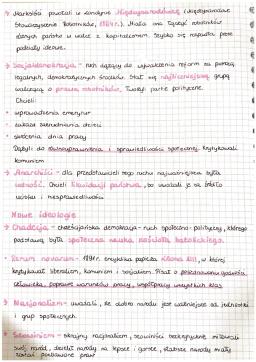 → Marksiści powołali w Londynie Międzynarodówkę (Międzynarodowe
Stowarzyszenie Robotników, 1864r.). Miała ona łączyć robotników
różnych państw w walce z kapitalizmem. Szybko się rozpadła przez
podziały ideowe.
→ Socjaldemokracja - ruch dążący do wprowadzenia reform za pomocą
legalnych, demokratycznych środków. Stał się najliczniejszą grupą
walczącą o prawa robotników, tworzyli partie polityczne.
Chcieli:
• wprowadzenia emerytur
• zakazu zatrudniania dzieci
• skrócenia dnia pracy
Dążyli do równouprawnienia i sprawiedliwości społecznej. Krytykowali
komunizm
→ Anarchiści - dla przedstawicieli tego ruchu najważniejsza była
wolność. Chcieli likwidacji państwa, bo uważali je za źródło
ucisku i niesprawiedliwości
Nowe ideologie
→ Chadecja - chrześcijańska demokracja - ruch społeczno-polityczny, którego
podstawą była społeczna nauka kościoła katolickiego.
→ Rerum novarum - 1891r. encyklika papieża Leona XIII, w której
krytykował liberalizm, komunizm i socjalizm. Pisał o poszanowaniu godności
człowieka, poprawie warunków pracy, współpracy wszystkich klas
→ Nacjonalizm - uważali, że dobro narodu jest ważniejsze od jednostki
i grup społecznych.
→ Szowinizm - skrajny nacjonalizm, szowiniści bezkrytycznie miłowali
swój naród, dzielili narody na lepsze i gorsze, słabsze narody miały
zostać podbijane przez